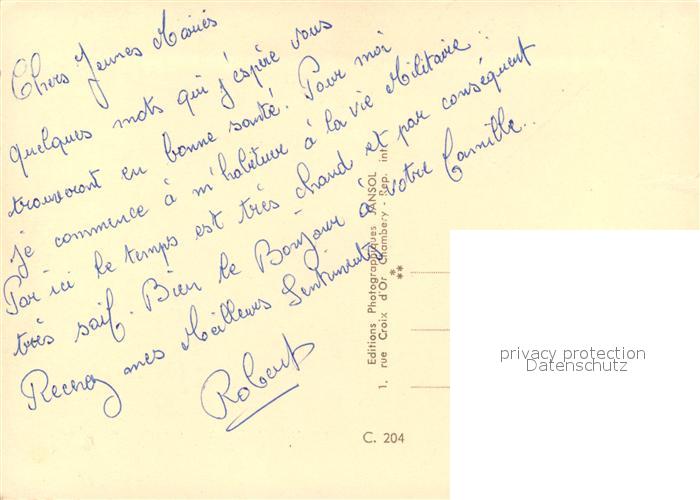 Chers Jeunes Mariés
quelques mots qui j'espère vous
trouveront en bonne santé. Pour moi
je commence à m'habituer à la vie Militaire.
Par ici le temps est très chaud et par conséquent
très soif. Bien le Bonjour à votre famille..
Recevez mes Meilleurs Sentiments
Robert
Editions Photographiques JANSOL
1, rue Croix d'Or Chambéry - Rep. int.
C. 204
privacy protection
Datenschutz